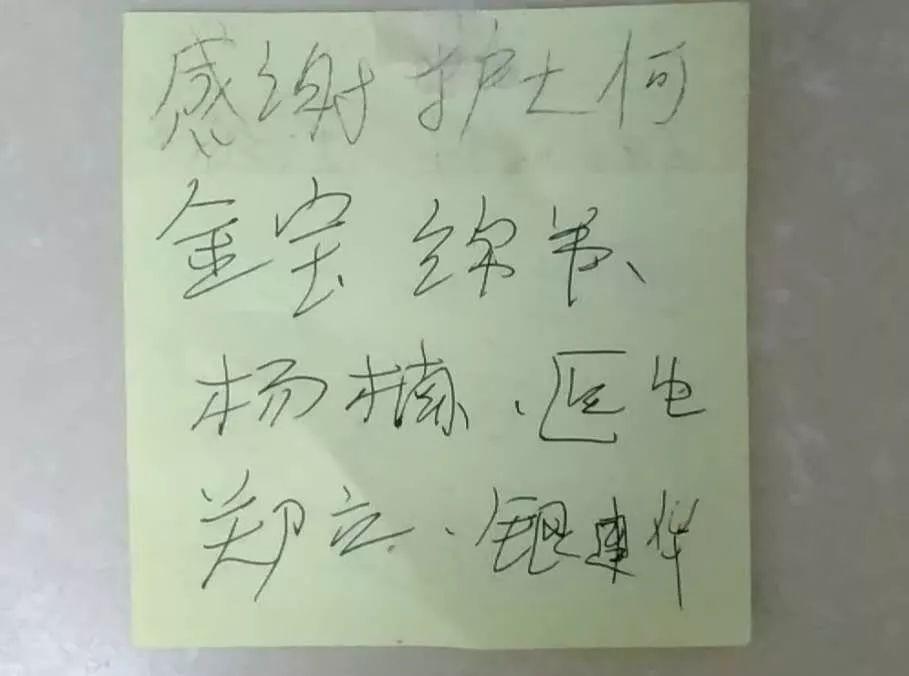 感谢护士何
金宝 练弟、
杨楠、医生
郑立、银建华